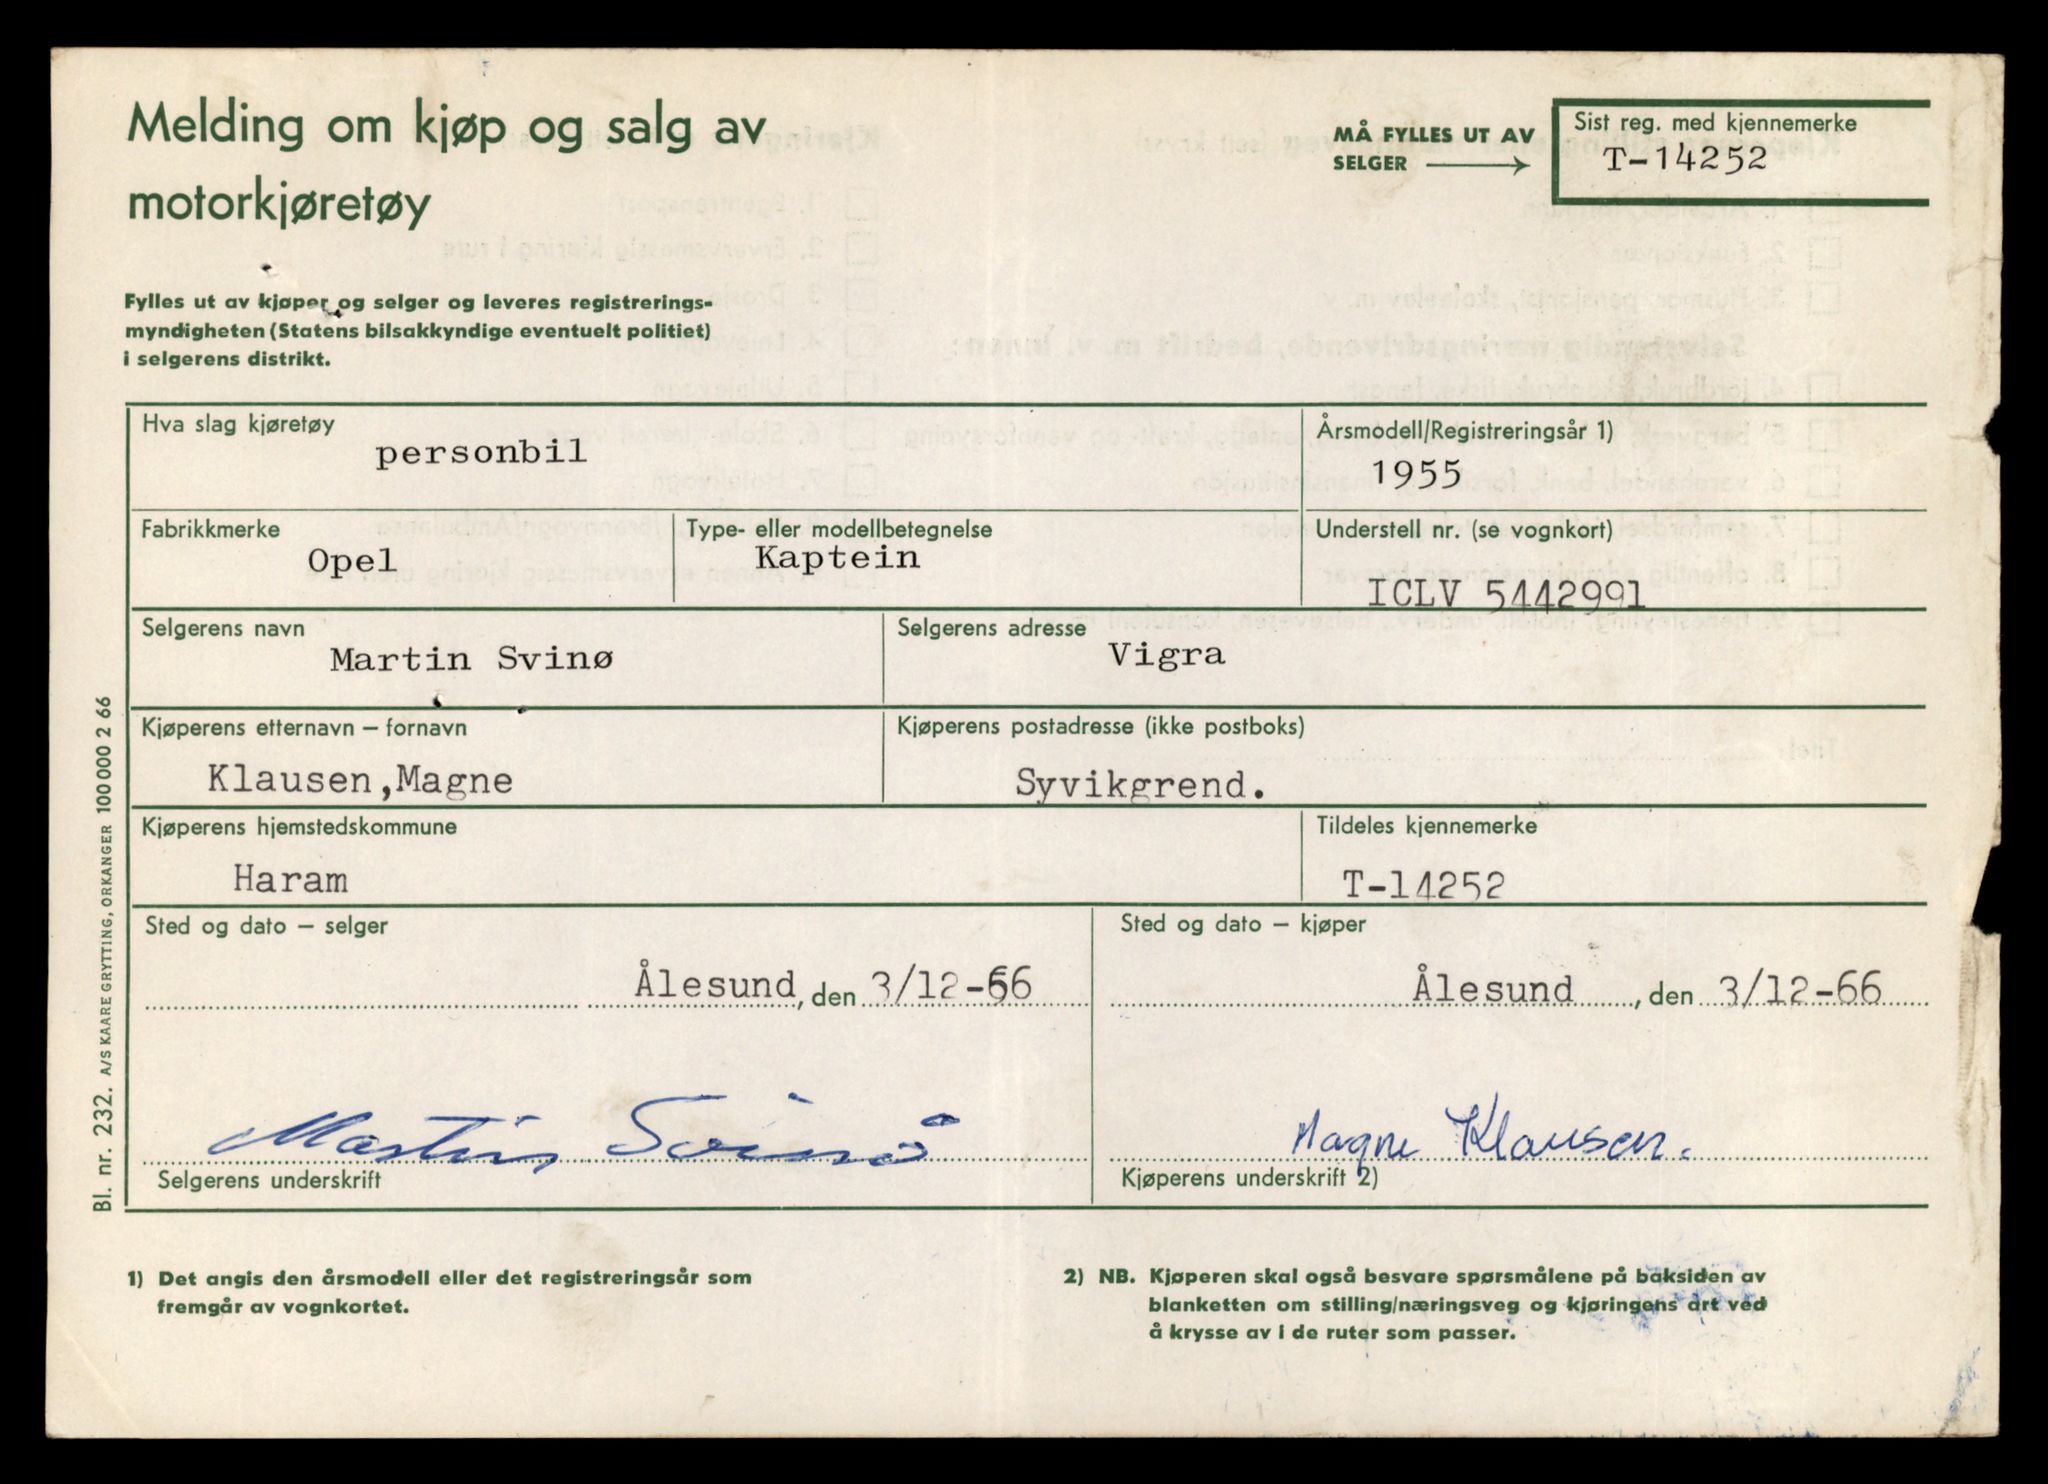 Melding om kjøp og salg av
motorkjøretøy
MÅ FYLLES UT AV
SELGER
Sist reg. med kjennemerke
T-14252
Fylles ut av kjøper og selger og leveres registrerings-
myndigheten (Statens bilsakkyndige eventuelt politiet)
i selgerens distrikt.
Hva slag kjøretøy
personbil
Årsmodell/Registreringsår 1)
1955
Fabrikkmerke
Opel
Type- eller modellbetegnelse
Kaptein
Understell nr. (se vognkort)
ICLV 5442991
Selgerens navn
Martin Svinø
Selgerens adresse
Vigra
Kjøperens etternavn – fornavn
Klausen,Magne
Kjøperens postadresse (ikke postboks)
Syvikgrend.
Kjøperens hjemstedskommune
Haram
Tildeles kjennemerke
T-14252
Sted og dato – selger
Ålesund, den 3/12-66
Sted og dato – kjøper
Ålesund, den 3/12-66
Martin Svinø
Selgerens underskrift
Magne Klausen.
Kjøperens underskrift 2)
Bl. nr. 232. A/S KAARE GRYTTING, ORKANGER 100 000 2 66
1) Det angis den årsmodell eller det registreringsår som
fremgår av vognkortet.
2) NB. Kjøperen skal også besvare spørsmålene på baksiden av
blanketten om stilling/næringsveg og kjøringens art ved
å krysse av i de ruter som passer.